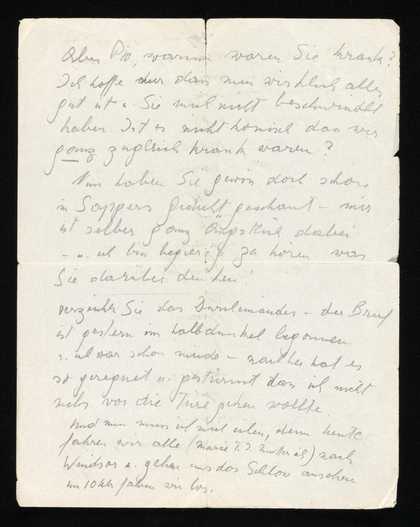 Aber Pio, warum waren Sie krank?
Ich hoffe nur dass nun wirklich alles
gut ist u. Sie mich nicht beschwindelt
haben. Ist es nicht komisch dass wir
ganz zugleich krank waren?
Nun haben Sie gewiss doch schon
in Sappers geschaut – mir
ist selber ganz ängstlich dabei
– u. ich bin begierig zu hören was
Sie darüber denken!
verzeihn Sie das Durcheinander – der Brief
ist gestern im halbdunkel begonnen
u. ich war schon müde – nachher hat es
so geregnet u. gestürmt dass ich nicht
mehr vor die Türe gehen wollte.
Und nun muss ich mich eilen, denn heute
fahren wir alle (Marie T. T. ) nach
Windsor u. gehen uns das Schloss anschauen
um 10 Uhr fahren wir los.